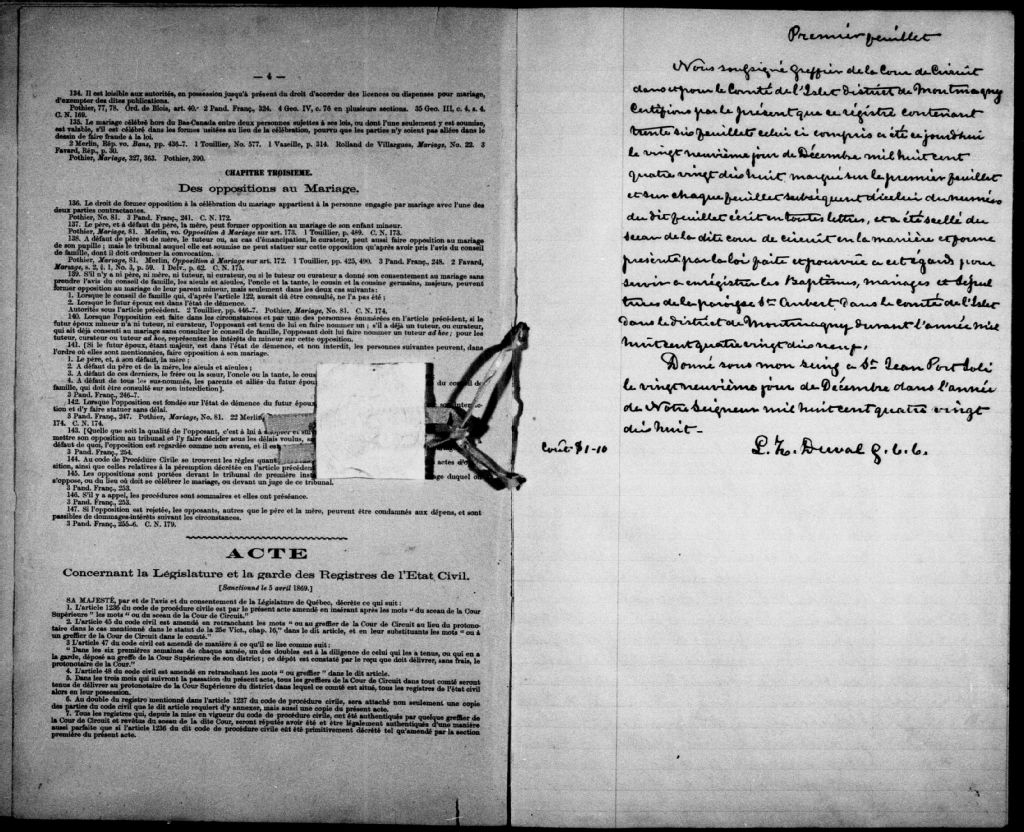 — 4 —
134. Il est loisible aux autorités, en possession jusqu'à présent du droit d'accorder des licences ou dispenses pour mariage,
d'exempter des dites publications.
Pothier, 77, 78. Ord. de Blois, art. 40. 2 Pand. Franç., 324. 4 Geo. IV, c. 76 en plusieurs sections. 35 Geo. III, c. 4, s. 4.
C. N. 169.
135. Le mariage célébré hors du Bas-Canada entre deux personnes sujettes à ses lois, ou dont l'une seulement y est soumise,
est valable, s'il est célébré dans les formes usitées au lieu de la célébration, pourvu que les parties n'y soient pas allées dans le
dessin de faire fraude à la loi.
2 Merlin, Rép. vo. Bans, pp. 436-7. 1 Touillier, No. 577. 1 Vazeille, p. 314. Rolland de Villargues, Mariage, No. 22. 3
Favard, Rép., p. 30.
Pothier, Mariage, 327, 363. Pothier, 390.
CHAPITRE TROISIEME.
Des oppositions au Mariage.
136. Le droit de former opposition à la célébration du mariage appartient à la personne engagée par mariage avec l'une des
deux parties contractantes.
Pothier, No. 81. 3 Pand. Franç., 241. C. N. 172.
137. Le père, et à défaut du père, la mère, peut former opposition au mariage de son enfant mineur.
Pothier, Mariage, 81. Merlin, vo. Opposition à Mariage sur art. 173. 1 Touillier, p. 489. C. N. 173.
138. A défaut de père et de mère, le tuteur ou, au cas d'émancipation, le curateur, peut aussi faire opposition au mariage
de son pupille ; mais le tribunal auquel elle est soumise ne peut statuer sur cette opposition qu'après avoir pris l'avis du conseil
de famille, dont il doit ordonner la convocation.
Pothier, Mariage, 81. Merlin, Opposition à Mariage sur art. 172. 1 Touillier, pp. 425, 490. 3 Pand. Franç., 248. 2 Favard,
Mariage, s. 2, § 1, No. 3, p. 59. 1 Delv., p. 62. C. N. 175.
139. S'il n'y a ni père, ni mère, ni tuteur, ni curateur, ou si le tuteur ou curateur a donné son consentement au mariage sans
prendre l'avis du conseil de famille, les aïeuls et aïeules, l'oncle et la tante, le cousin et la cousine germains, majeurs, peuvent
former opposition au mariage de leur parent mineur, mais seulement dans les deux cas suivants:
1. Lorsque le conseil de famille qui, d'après l'article 122, aurait dû être consulté, ne l'a pas été ;
2. Lorsque le futur époux est dans l'état de démence.
Autorités sous l'article précédent. 2 Touillier, pp. 446-7. Pothier, Mariage, No. 81. C. N. 174.
140. Lorsque l'opposition est faite dans les circonstances et par une des personnes énumérées en l'article précédent, si le
futur époux mineur n'a ni tuteur, ni curateur, l'opposant est tenu de lui en faire nommer un ; s'il a déjà un tuteur, ou curateur,
qui ait déjà consenti au mariage sans consulter le conseil de famille, l'opposant doit lui faire nommer un tuteur ad hoc ; pour les
tuteur, curateur ou tuteur ad hoc, représenter les intérêts du mineur sur cette opposition.
141. [Si le futur époux, étant majeur, est dans l'état de démence, et non interdit, les personnes suivantes peuvent, dans
l'ordre où elles sont mentionnées, faire opposition à son mariage.
1. Le père, et, à son défaut, la mère ;
2. A défaut du père et de la mère, les aïeuls et aïeules ;
3. A défaut de ces derniers, le frère ou la sœur, l'oncle ou la tante, le cous
4. A défaut de tous les sus-nommés, les parents et alliés du futur épou du conseil de
famille, qui doit être consulté sur son interdiction].
3 Pand. Franç., 246-7.
142. Lorsque l'opposition est fondée sur l'état de démence du futur épou
tion et d'y faire statuer sans délai.
3 Pand. Franç., 247. Pothier, Mariage, No. 81. 22 Merlin
174. C. N. 174.
143. [Quelque soit la qualité de l'opposant, c'est à lui à
mettre son opposition au tribunal et l'y faire décider sous les délais voulus, s
défaut de quoi, l'opposition est regardée comme non avenue, et il est
3 Pand. Franç., 254.
144. Au code de Procédure Civile se trouvent les règles quant actes d'o
sition, ainsi que celles relatives à la péremption décrétée en l'article précédent
145. Les oppositions sont portées devant le tribunal de première inst age duquel on
s'oppose, ou du lieu où doit se célébrer le mariage, ou devant un juge de ce tribunal.
3 Pand. Franç., 253.
146. S'il y a appel, les procédures sont sommaires et elles ont préséance.
3 Pand. Franç., 253.
147. Si l'opposition est rejetée, les opposants, autres que le père et la mère, peuvent être condamnés aux dépens, et sont
passibles de dommages-intérêts suivant les circonstances.
3 Pand. Franç., 255-6. C. N. 179.
ACTE
Concernant la Législature et la garde des Registres de l'Etat Civil.
[Sanctionné le 5 avril 1869.]
SA MAJESTÉ, par et de l'avis et du consentement de la Législature de Québec, décrète ce qui suit :
1. L'article 1236 du code de procédure civile est par le présent acte amendé en insérant après les mots " du sceau de la Cour
Supérieure " les mots " ou du sceau de la Cour de Circuit."
2. L'article 45 du code civil est amendé en retranchant les mots " ou au greffier de la Cour de Circuit au lieu du protono-
taire dans le cas mentionné dans le statut de la 25e Vict., chap. 16," dans le dit article, et en leur substituant les mots " ou à
un greffier de la Cour de Circuit dans le comté."
3 L'article 47 du code civil est amendé de manière à ce qu'il se lise comme suit :
" Dans les six premières semaines de chaque année, un des doubles est à la diligence de celui qui les a tenus, ou qui en a
la garde, déposé au greffe de la Cour Supérieure de son district ; ce dépôt est constaté par le reçu que doit délivrer, sans frais, le
protonotaire de la Cour."
4. L'article 48 du code civil est amendé en retranchant les mots " ou greffier " dans le dit article.
5. Dans les trois mois qui suivront la passation du présent acte, tous les greffiers de la Cour de Circuit dans tout comté seront
tenus de délivrer au protonotaire de la Cour Supérieure du district dans lequel ce comté est situé, tous les registres de l'état civil
alors en leur possession.
6. Au double du registre mentionné dans l'article 1237 du code de procédure civile, sera attaché non seulement une copie
des parties du code civil que le dit article requiert d'y annexer, mais aussi une copie du présent acte.
7. Tous les registres qui, depuis la mise en vigueur du code de procédure civile, ont été authentiqués par quelque greffier de
la Cour de Circuit et revêtus du sceau de la dite Cour, seront réputés avoir été et être légalement authentiqués d'une manière
aussi parfaite que si l'article 1236 du dit code de procédure civile eût été primitivement décrété tel qu'amendé par la section
première du présent acte.
Premier feuillet
Nous soussigné Greffier de la Cour de Circuit
dans et pour le Comté de l'Islet District de Montmagny
Certifions par le présent que ce régistre contenant
trente six feuillets celui ci compris a été ce jourd'hui
le vingt neuvième jour de Décembre mil huit cent
quatre vingt dix huit marqué sur le premier feuillet
et sur chaque feuillet subséquent d'icelui du numéro
du dit feuillet écrit en toutes lettres, et a été scellé du
sceau de la dite cour de circuit en la manière et forme
présenté par la loi faite et pourvue a cet égard, pour
servir a enrégistrer les Baptêmes, mariages et Sépul
tures de la paroisse St. Aubert dans le comté de l'Islet
dans le district de Montmagny durant l'année mil
huit cent quatre vingt dix neuf.
Donné sous mon seing a St. Jean Port Joli
le vingt neuvième jour de Décembre dans l'année
de Notre Seigneur mil huit cent quatre vingt
dix huit -
Coût $1-10
L. Z. Duval g. c. c.